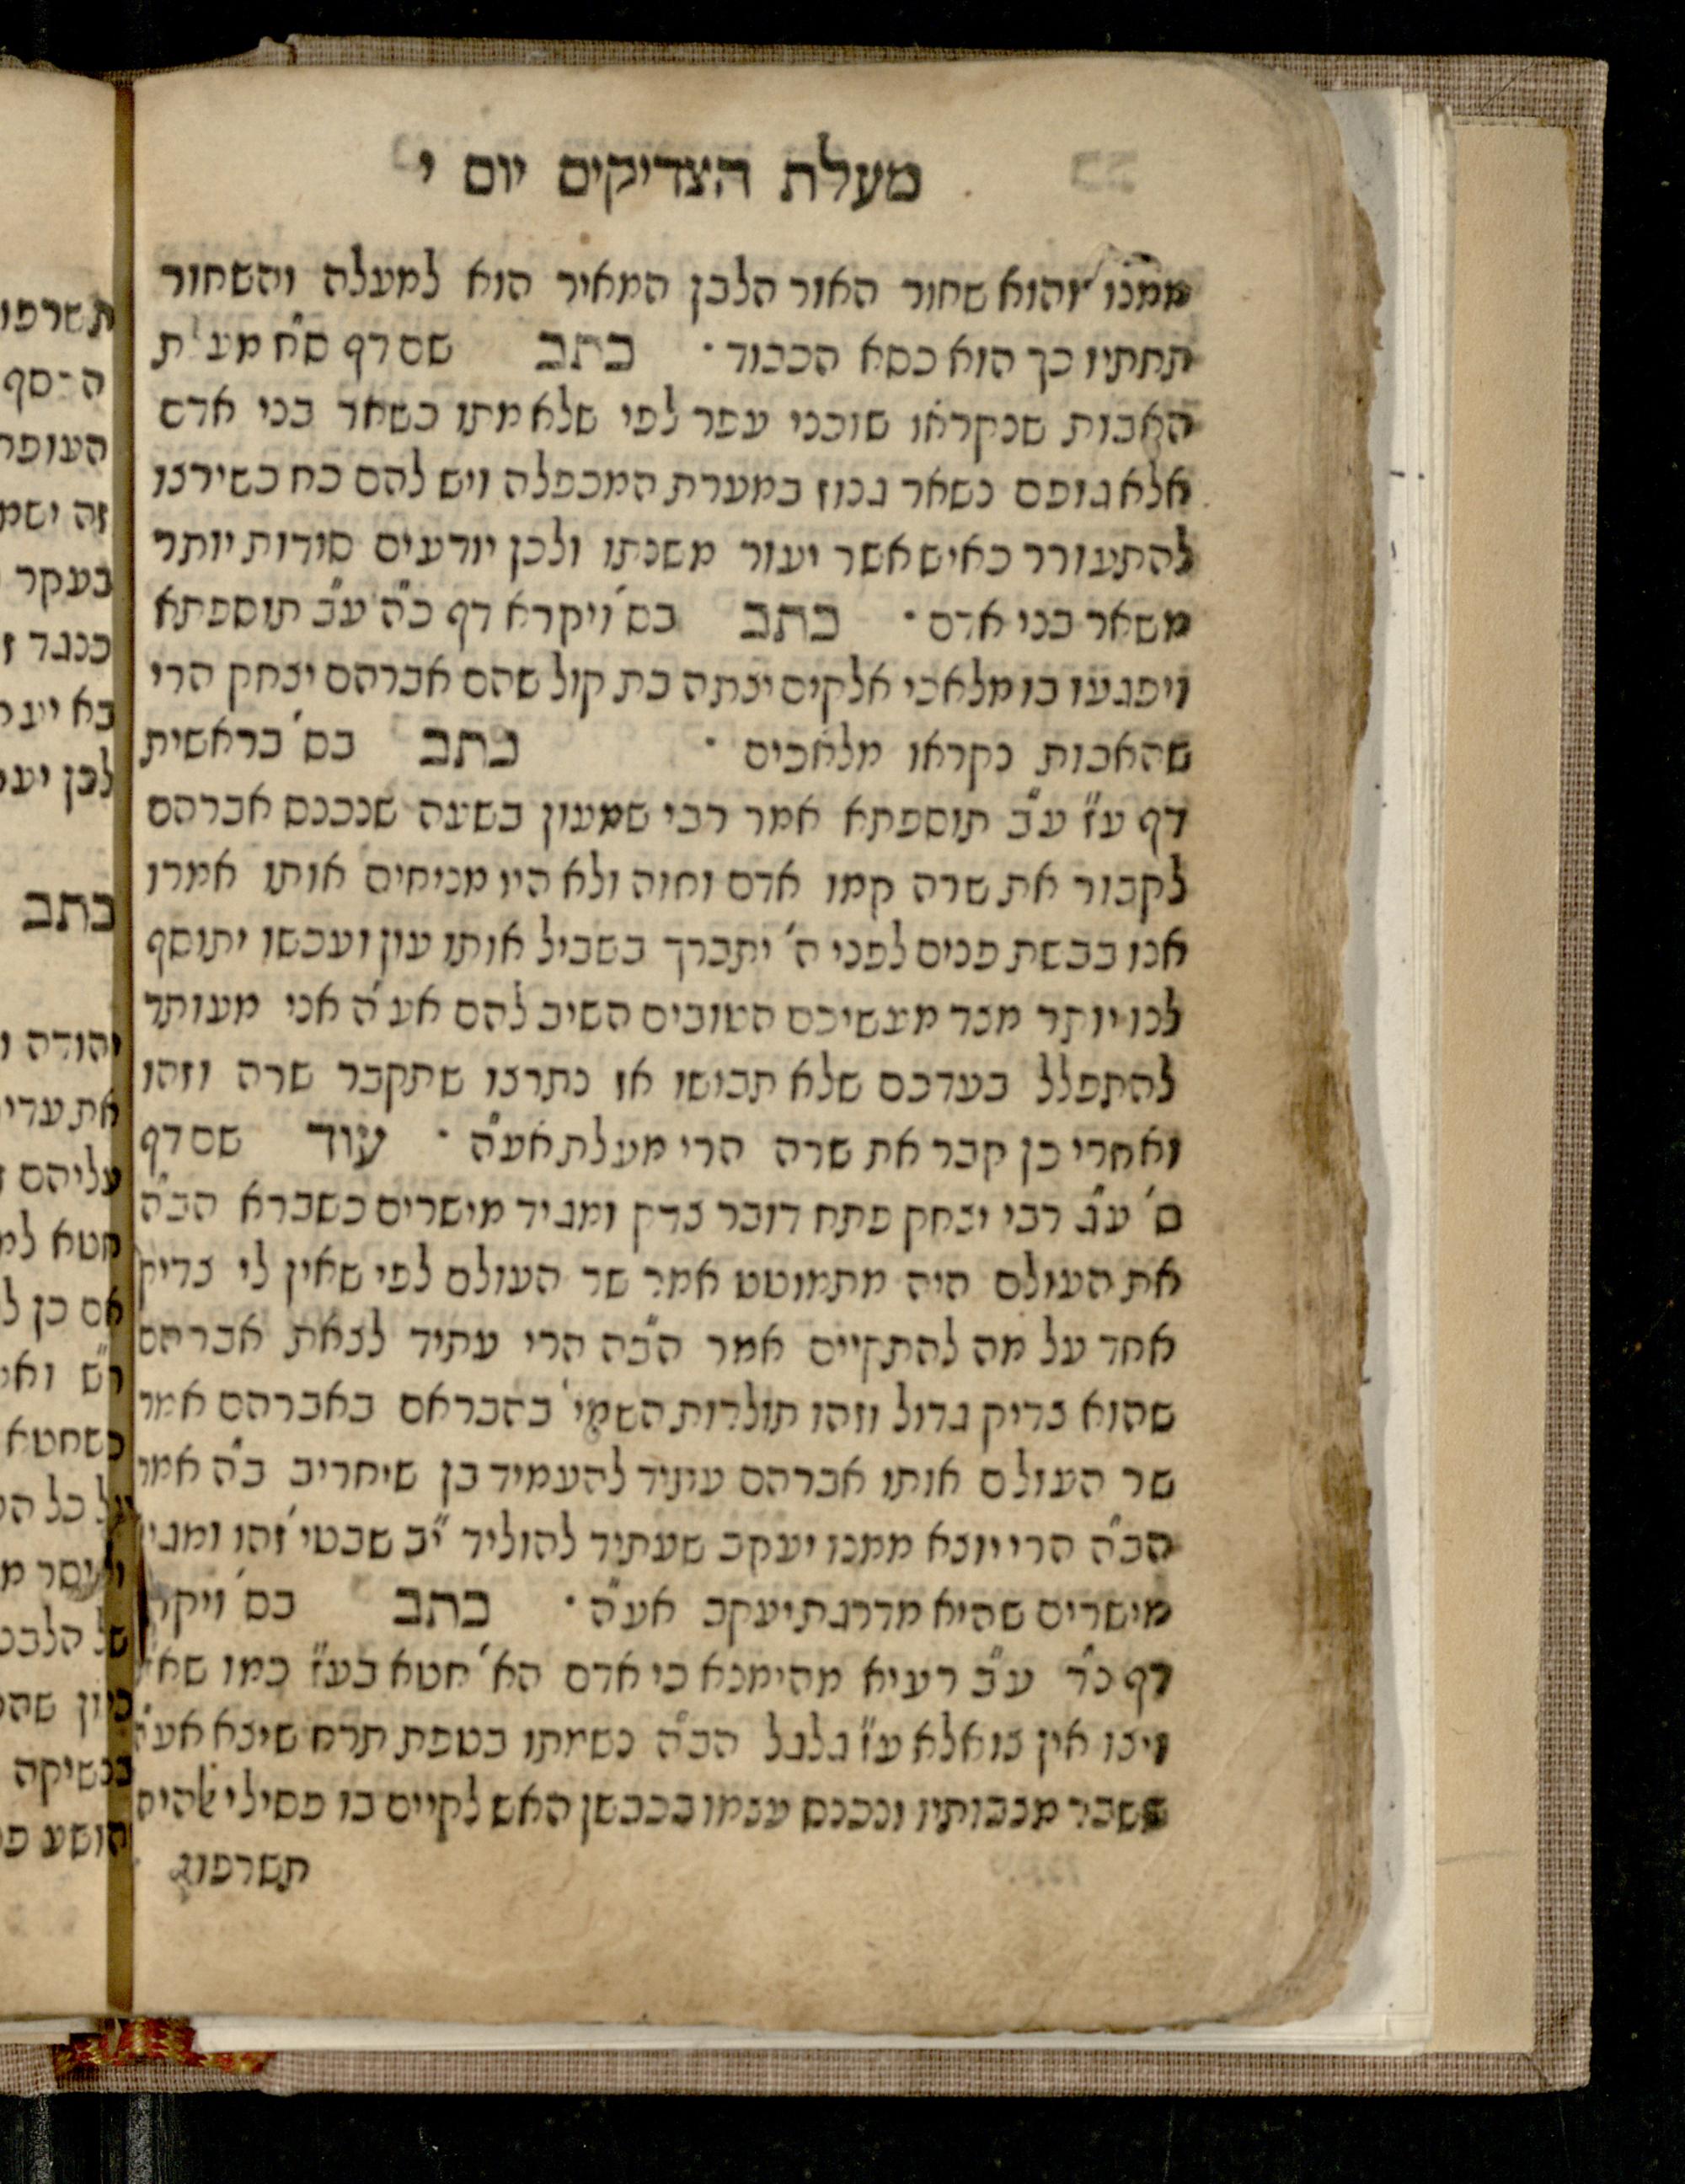 מעלת הצדיקים יום י
ממנו והוא שחור האור הלבן המאיר הוא למעלה והשחור
תחתיו כך הוא כסא הכבוד · כתב שם דף ס״ח מעלת
האבות שנקראו שוכני עפר לפי שלא מתו כשאר בני אדם
אלא גופם נשאר גנוז במערת המכפלה ויש להם כח כשירצו
להתעורר כאיש אשר יעור משנתו ולכן יודעים סודות יותר
משאר בני אדם · כתב בס׳ ויקרא דף כ״ה ע״ב תוספתא
ויפגעו בו מלאכי אלקים יצתה בת קול שהם אברהם יצחק הרי
שהאבות נקראו מלאכים · כתב בס׳ בראשית
דף ע״ז ע״ב תוספתא אמר רבי שמעון בשעה שנכנס אברהם
לקבור את שרה קמו אדם וחוה ולא היו מניחים אותו אמרו
אנו בבשת פנים לפני ה׳ יתברך בשביל אותו עון ועכשו יתוסף
לנו יותר מצד מעשיכם הטובים השיב להם אע״ה אני מעותד
להתפלל בעדכם שלא תבושו אז נתרצו שתקבר שרה וזהו
ואחרי כן קבר את שרה הרי מעלת אע״ה · עוד שם דף
ס׳ ע״ג רבי יצחק פתח דובר צדק ומגיד מישרים כשברא הב״ה
את העולם היה מתמוטט אמר שר העולם לפי שאין לי צדיק
אחד על מה להתקיים אמר הב״ה הרי עתיד לצאת אברהם
שהוא צדיק גדול וזהו תולדות השמי׳ בהבראם באברהם אמר
שר העולם אותו אברהם עתיד להעמיד בן שיחריב ב״ה אמר
הב״ה הרי יוצא ממנו יעקב שעתיד להוליד י״ב שבטי׳ זהו ומגיד
מישרים שהיא מדרגת יעקב אע״ה · כתב בס׳ ויקרא
דף כ״ד ע״ב רעיא מהימנא כי אדם הא׳ חטא בע״ז כמו שאז״ל
ויצו אין צו אלא ע״ז גלגל הב״ה נשמתו בטפת תרח שיצא אע״ה
ששבר מצבותיו ונכנס עצמו בכבשן האש לקיים בו פסילי אלהיה׳
תשרפון